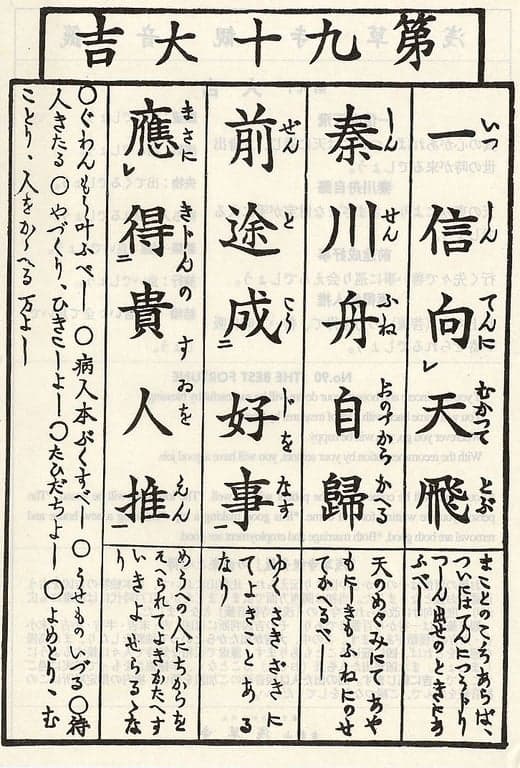 第九十大吉
一信向天飛
いつしんてんにむかつてとぶ
まことのこころあらば、
つゐにはてんへつうじ、り
つしん出せのときにあ
ふべし
秦川舟自歸
しんせんふねおのづからかゑる
天のめぐみにて、あや
もにしきもふねにのせ
てかへるべし
前途成好事
ぜんとこうじをなす
ゆくさきざきに
てよきことある
なり
應得貴人推
まさにきじんのすゐをえん
めうへの人にちからを
そへられてよきかたへす
いきよせらるゝな
り
〇ぐわんもう叶ふべし 〇病人本ぷくすべし 〇うせものいづる〇待
人きたる〇やづくり、ひきこしよし〇たびだちよし〇よめとり、む
ことり、人をかゝへる万よし